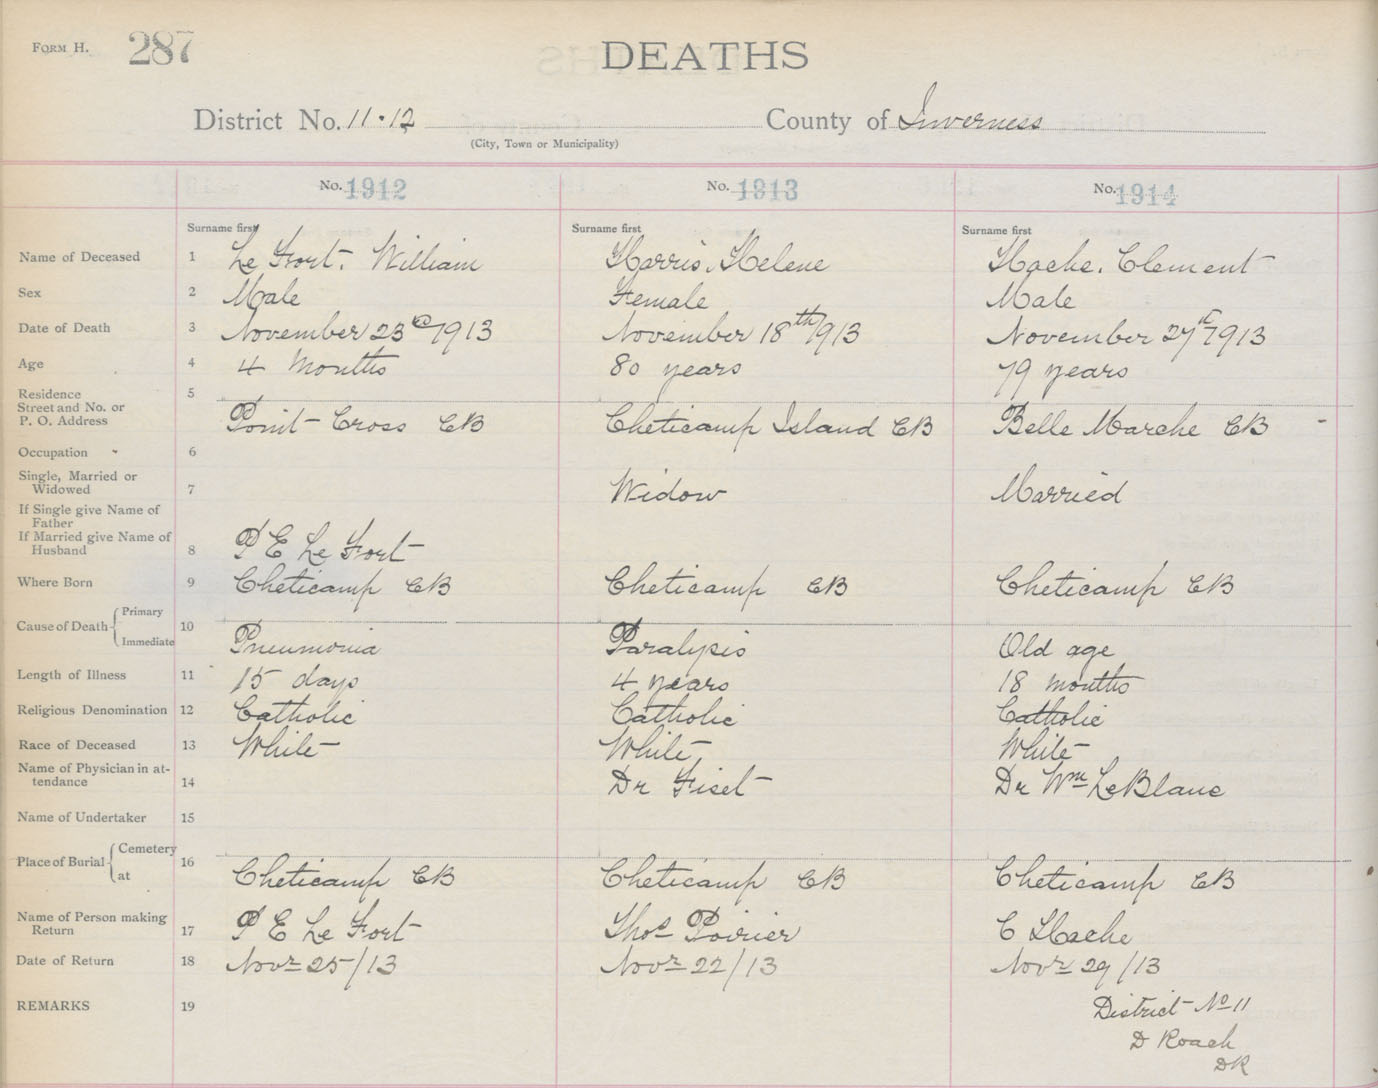 FORM H. 287 DEATHS
District No. 11·12 County of Inverness
(City, Town or Municipality)
No. 1912 No. 1913 No. 1914
Surname first Surname first Surname first
Name of Deceased 1 Le Fort. William Harris, Helene Hache. Clement
Sex 2 Male Female Male
Date of Death 3 November 23rd 1913 November 18th 1913 November 27th 1913
Age 4 4 months 80 years 79 years
Residence 5
Street and No. or
P. O. Address Point Cross CB Cheticamp Island CB Belle Marche CB
Occupation 6
Single, Married or
Widowed 7 Widow Married
If Single give Name of
Father
If Married give Name of
Husband 8 P E Le Fort
Where Born 9 Cheticamp CB Cheticamp CB Cheticamp CB
Cause of Death { Primary
Immediate 10 Pneumonia Paralysis Old age
Length of Illness 11 15 days 4 years 18 months
Religious Denomination 12 Catholic Catholic Catholic
Race of Deceased 13 White White White
Name of Physician in at-
tendance 14 Dr Fiset Dr Wm LeBlanc
Name of Undertaker 15
Place of Burial { Cemetery
at 16 Cheticamp CB Cheticamp CB Cheticamp CB
Name of Person making
Return 17 P E Le Fort Thos Poirier C Hache
Date of Return 18 Novr 25/13 Novr 22/13 Novr 29/13
REMARKS 19 District No 11
D Roach
DR